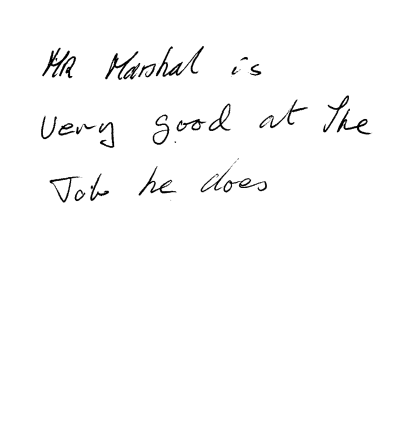 MR Marshal is
very good at The
Job he does